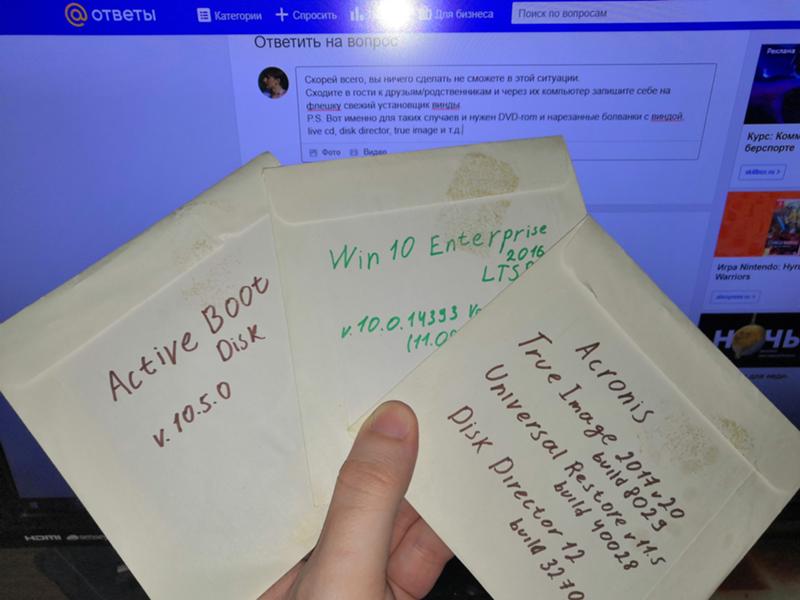 @ ответы
Категории
Спросить
Для бизнеса
Поиск по вопросам
Ответить на вопрос
Скорей всего, вы ничего сделать не сможете в этой ситуации.
Сходите в гости к друзьям/родственникам и через их компьютер запишите себе на
флешку свежий установщик винды.
P.S. Вот именно для таких случаев и нужен DVD-rom и нарезанные болванки с виндой,
live cd, disk director, true image и т.д.
Фото
Видео
Реклама
Курс: Комм
берспорте
skillbox.ru >
Игра Nintendo: Hyr
Warriors
aliexpress.ru >
НОЧЬ
Active Boot
Disk
v. 10.5.0
Win 10 Enterprise
2016
LTS
v. 10.0.14393
(11.0
Acronis
True Image 2017 v20
build 8029
Universal Restore v11.5
build 40028
Disk Director 12
build 3270
HDMI